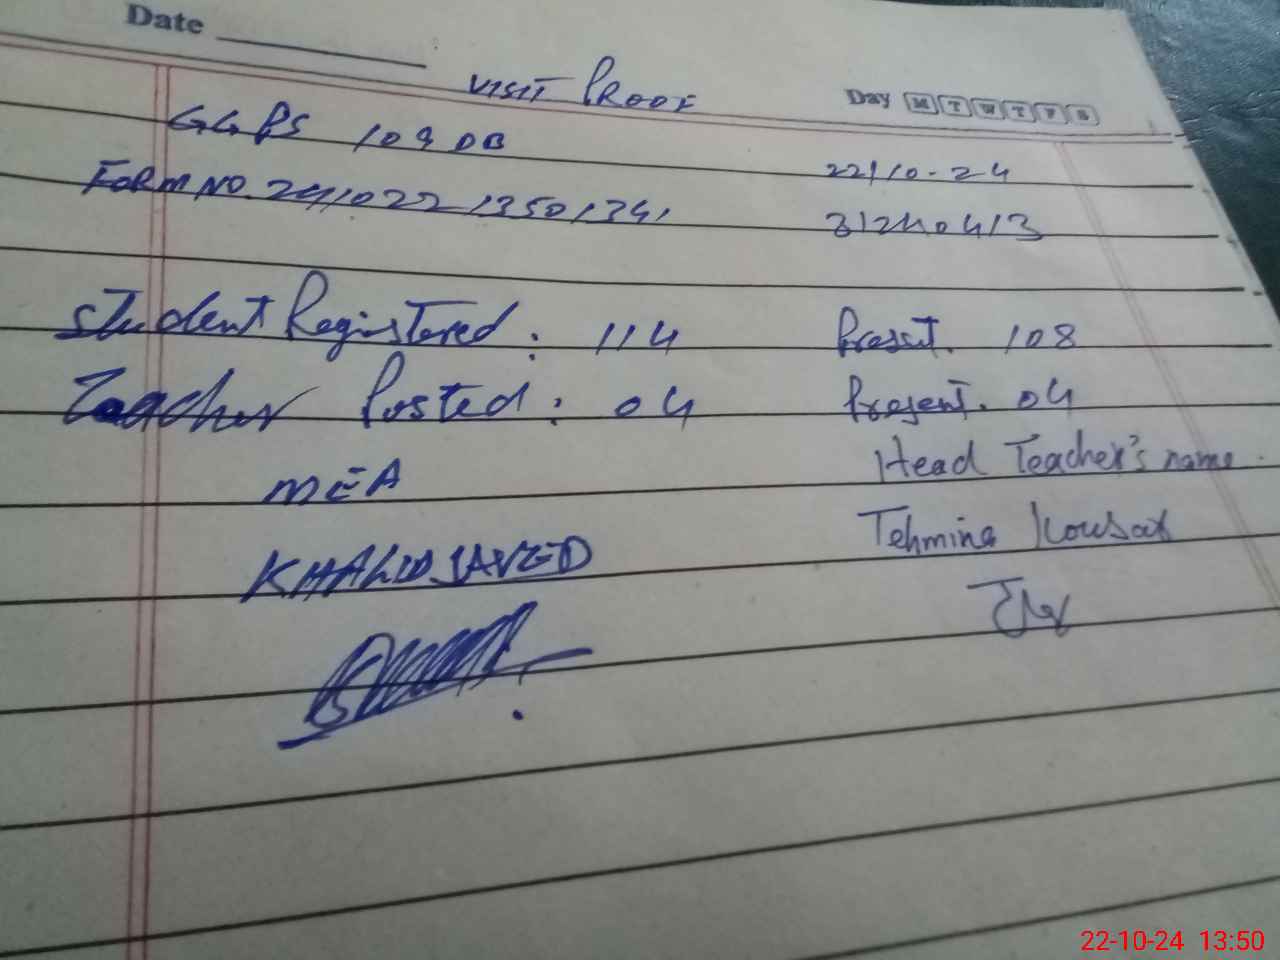 Date
VISIT PROOF
Day M T W T F S
GGPS 109 DB
22/10-24
FORM NO. 241022 13501341
31240413
Student Registered: 114
Present. 108
Teacher Posted: 04
Present. 04
MEA
Head Teacher's name.
KHALID JAVED
Tehmina Kousar
22-10-24 13:50